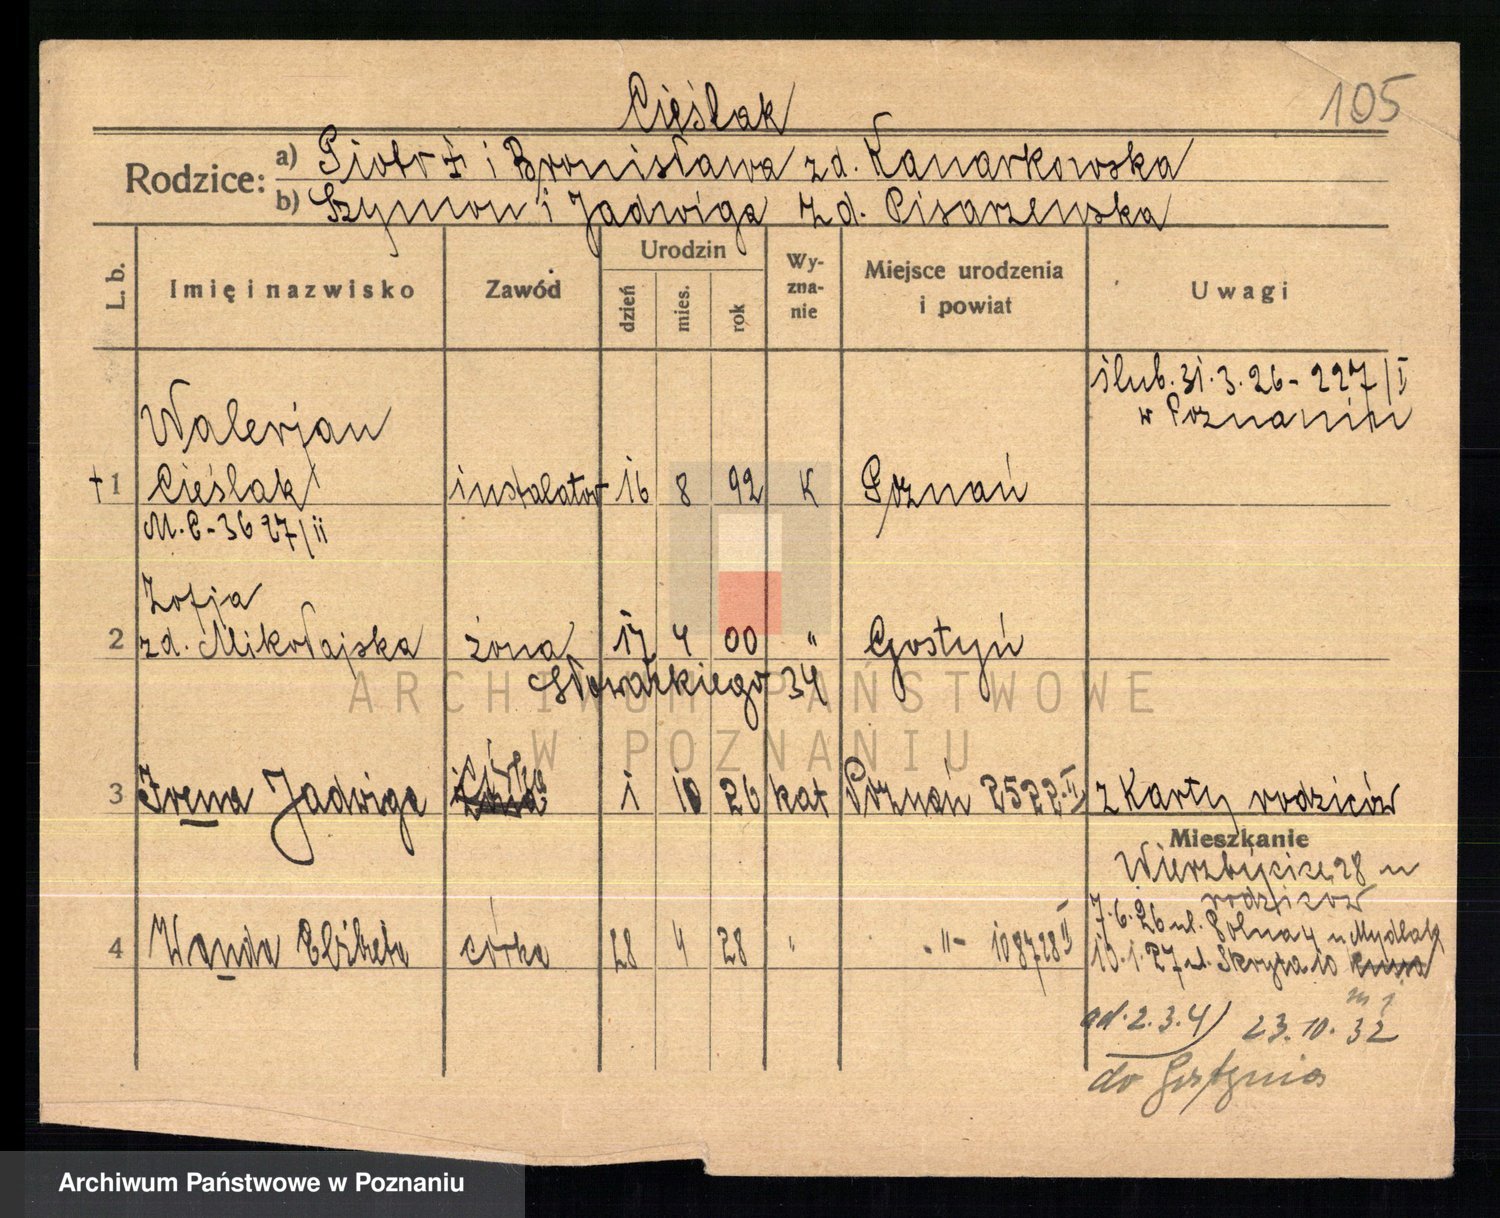 105
Cieślak
Rodzice:
a) Piotr † i Bronisława zd. Kanarkowska
b) Szymon i Jadwiga zd. Pisarzewska
L. b.
Imię i nazwisko
Zawód
Urodzin
dzień
mies.
rok
Wy-
zna-
nie
Miejsce urodzenia
i powiat
Uwagi
ślub. 31.3.26 - 227/I
w Poznaniu
Walerjan
†1 Cieślak instalator 16 8 92 K Poznań
M.C-3627/II
Zofja
2 zd. Mikołajska żona 17 4 00 " Gostyń
Słowackiego 34
3 Irena Jadwiga córka 1 10 26 kat Poznań 2522 II z Karty rodziców
Mieszkanie
Wierzbięcice 28 u
rodziców
7.6.26 ul. Polna 4 u Mydlak
4 Wanda Elżbieta córka 28 4 28 " -"- 108728 II
10.1.27 ul. Skryta 10
ad. 2.3.4) 23.10.32
do Gostynia
ARCHIWUM PAŃSTWOWE
W POZNANIU
Archiwum Państwowe w Poznaniu